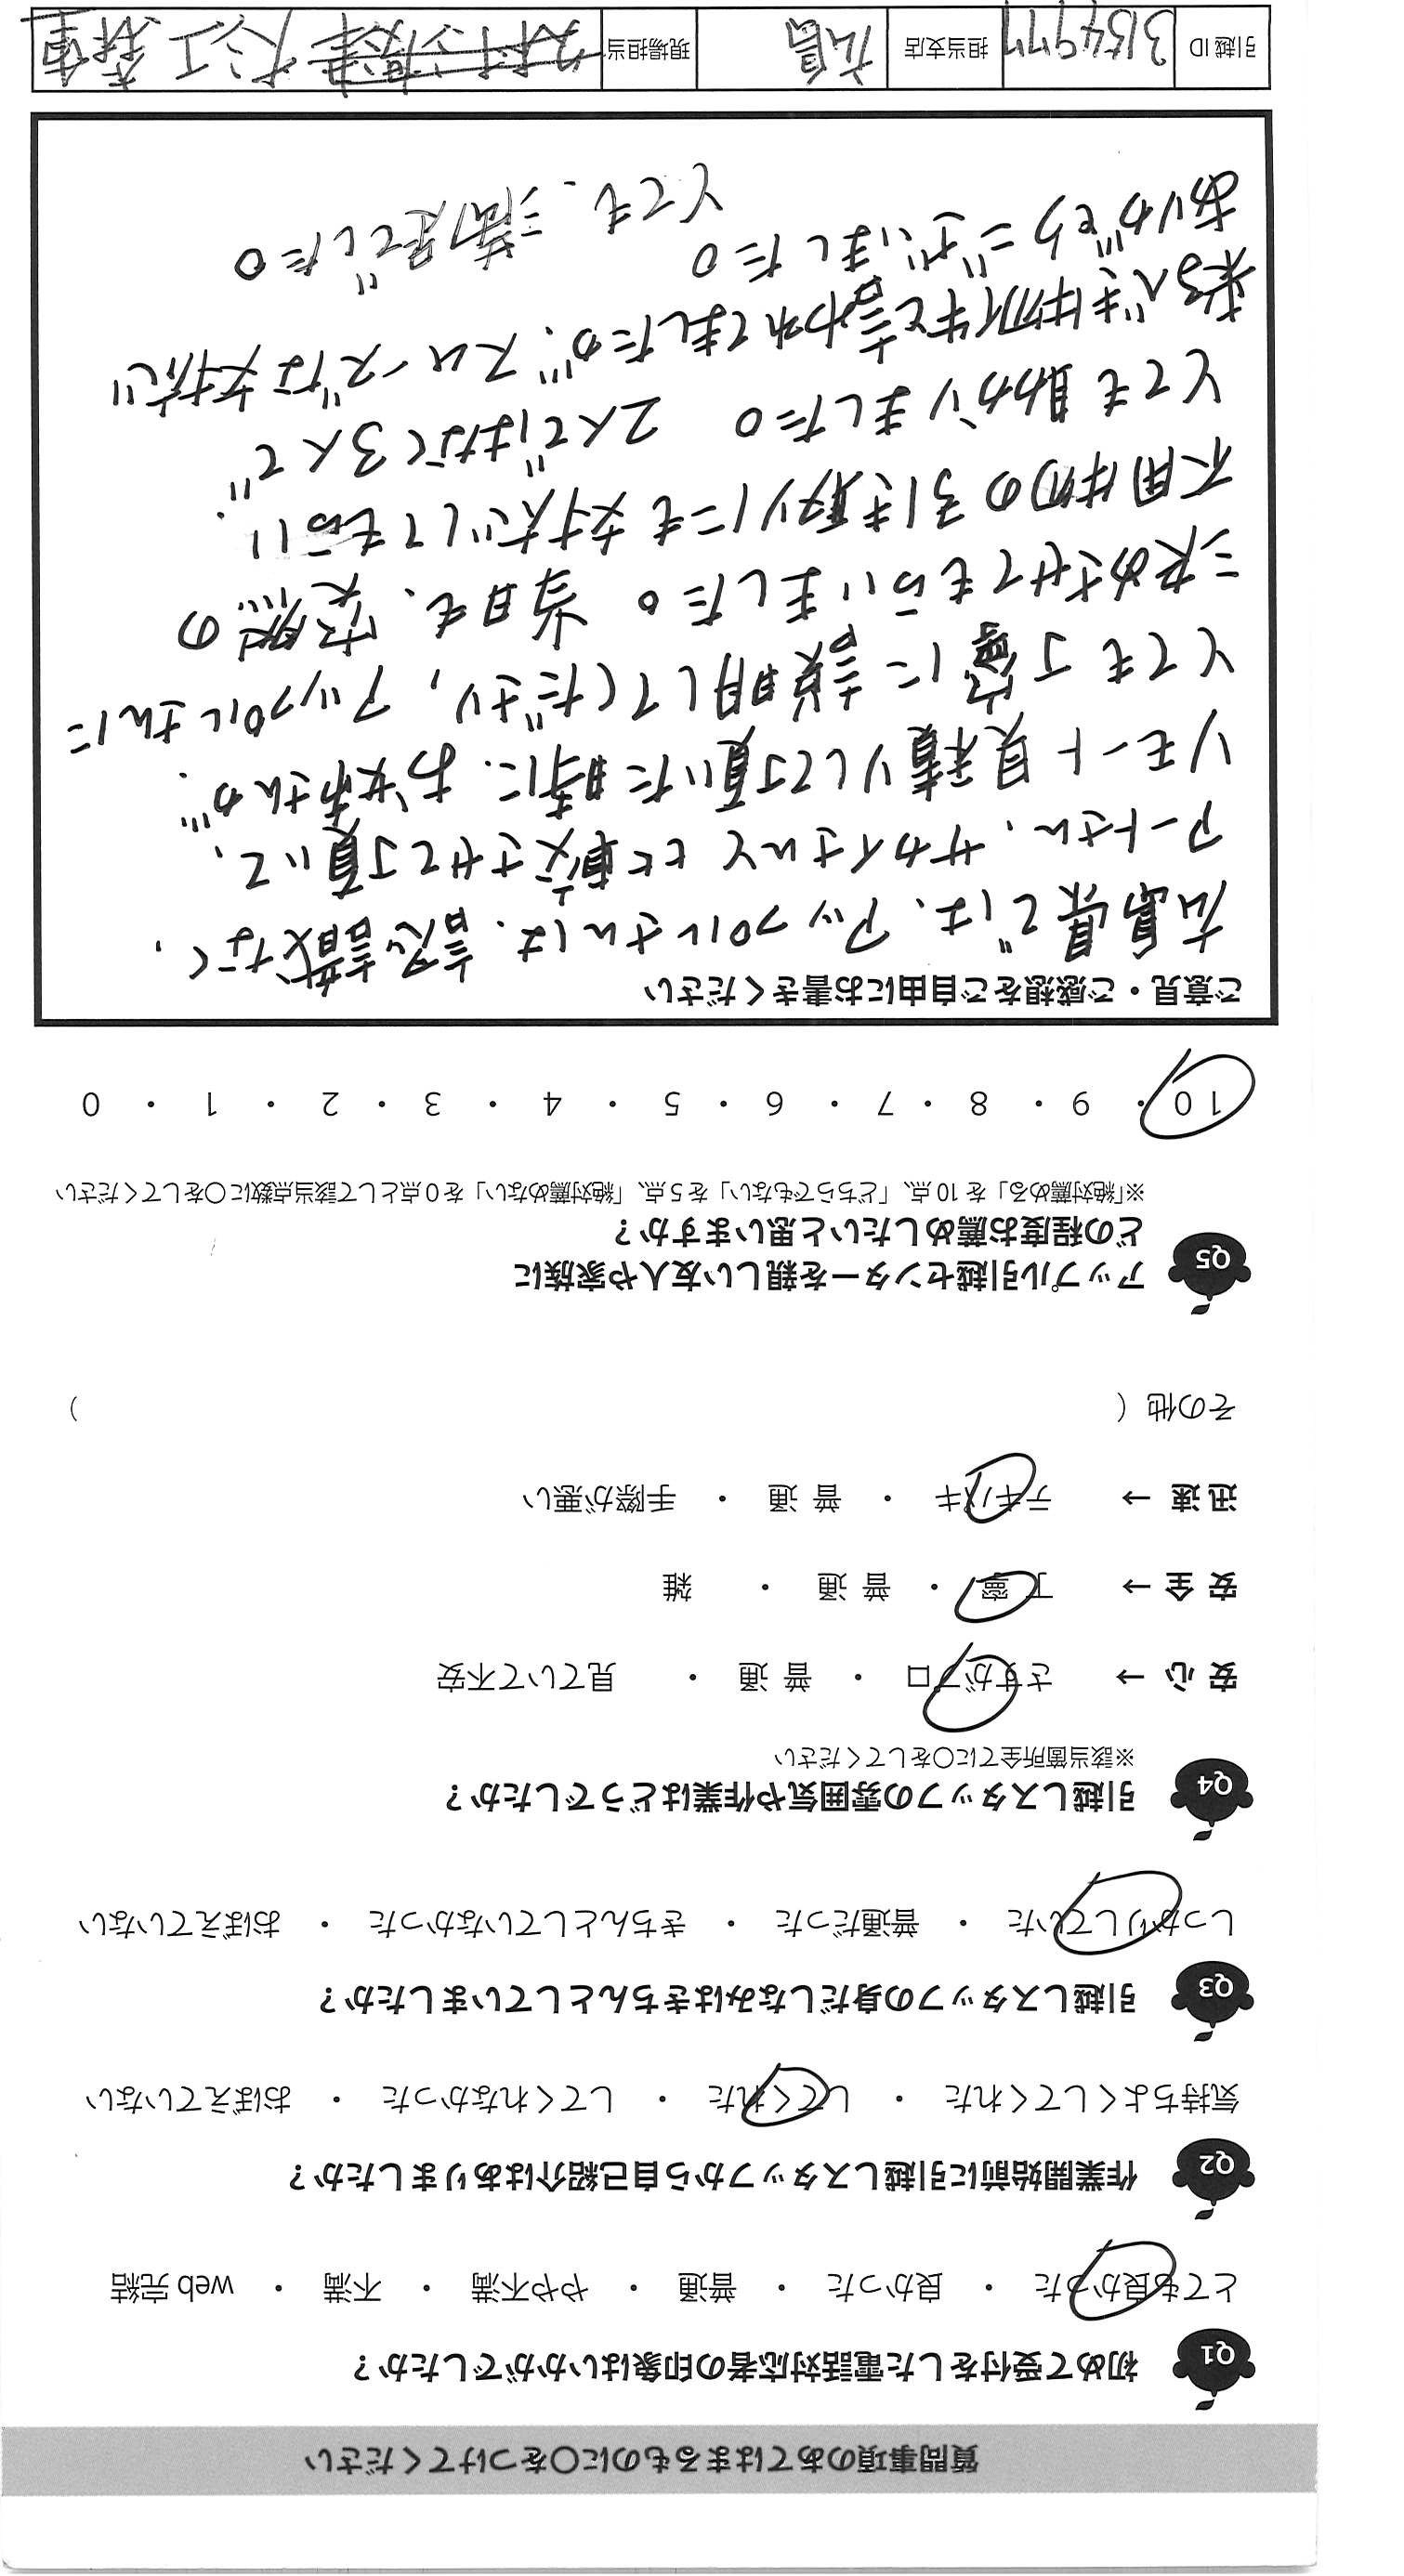 質問事項のあてはまるものに〇をつけてください
Q1 初めて受付をした電話対応者の印象はいかがでしたか?
とても良かった ・ 良かった ・ 普通 ・ やや不満 ・ 不満 ・ web 完結
Q2 作業開始前に引越しスタッフから自己紹介はありましたか?
気持ちよくしてくれた ・ してくれた ・ してくれなかった ・ おぼえていない
Q3 引越しスタッフの身だしなみはきちんとしていましたか?
しっかりしていた ・ 普通だった ・ きちんとしていなかった ・ おぼえていない
Q4 引越しスタッフの雰囲気や作業はどうでしたか?
※該当箇所全てに〇をしてください
安心 → さすがプロ ・ 普通 ・ 見ていて不安
安全 → 丁寧 ・ 普通 ・ 雑
迅速 → テキパキ ・ 普通 ・ 手際が悪い
その他 ( )
Q5 アップル引越センターを親しい友人や家族に
どの程度お薦めしたいと思いますか?
※「絶対薦める」を 10 点、「どちらでもない」を 5 点、「絶対薦めない」を 0 点として該当点数に〇をしてください
10 ・ 9 ・ 8 ・ 7 ・ 6 ・ 5 ・ 4 ・ 3 ・ 2 ・ 1 ・ 0
ご意見・ご感想をご自由にお書きください
広島県では、アップルさんは、認識なく、
アートさん、サカイさんと比較させて頂いて、
リモート見積りして頂いた時に、お姉さんが、
とても丁寧に説明してくださり、アップルさんに
決めさせてもらいました。当日も、突然の
不用物の引き取りにも対応してもらい、
とても助かりました。 2人ではなく3人で
来るべき物件と言われてましたが、スムーズな対応
ありがとうございました。
とても、満足でした。
引越ID 3154977 担当支店 広島 現場担当 大江